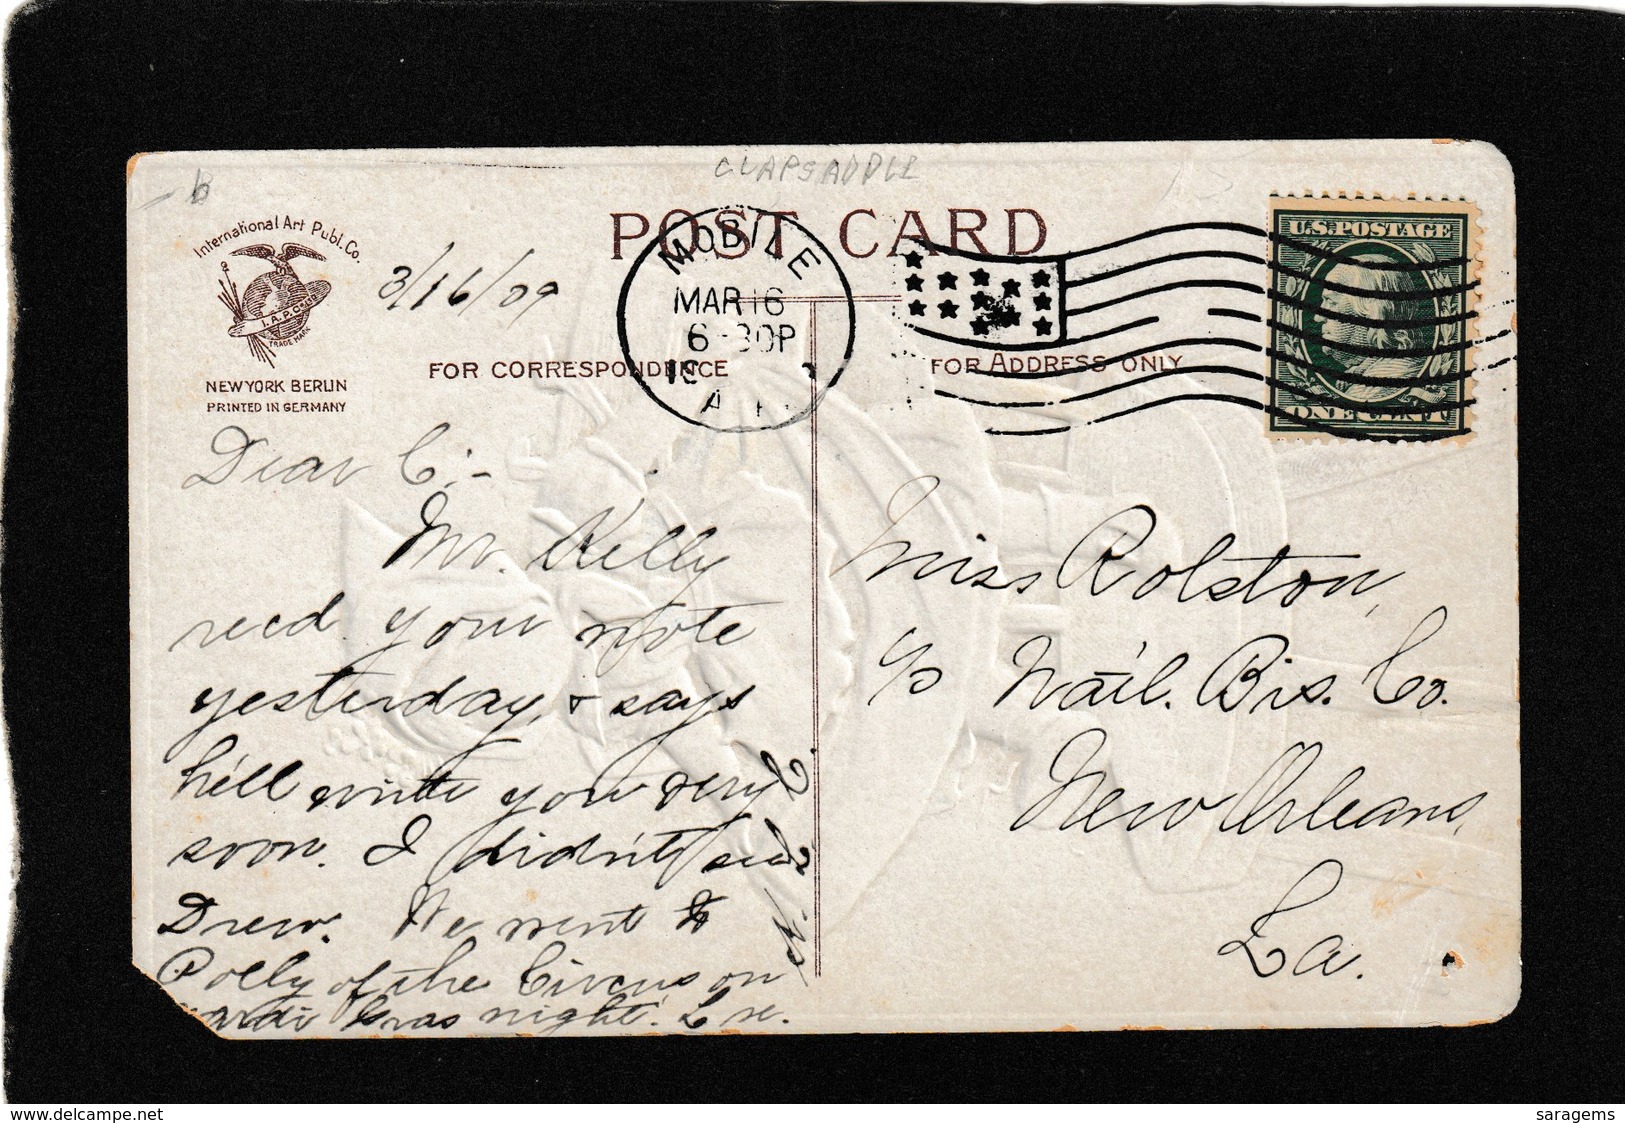 CLAPSADDLE
b
International Art Publ. Co.
I. A. P. CO.
TRADE MARK
NEW YORK BERLIN
PRINTED IN GERMANY
3/16/09
POST CARD
MOBILE
MAR 16
6-30P
19
A
U.S. POSTAGE
ONE CENT
FOR CORRESPONDENCE
FOR ADDRESS ONLY
Dear C:-
Mr. Kelly
recd. your note
yesterday, & says
he'll write you very
soon. I didn't see
Drew. We went to
Polly of the Circus on
ardi Gras night.
Miss Rolston,
c/o Nat'l. Bis. Co.
New Orleans,
La.
www.delcampe.net
saragems